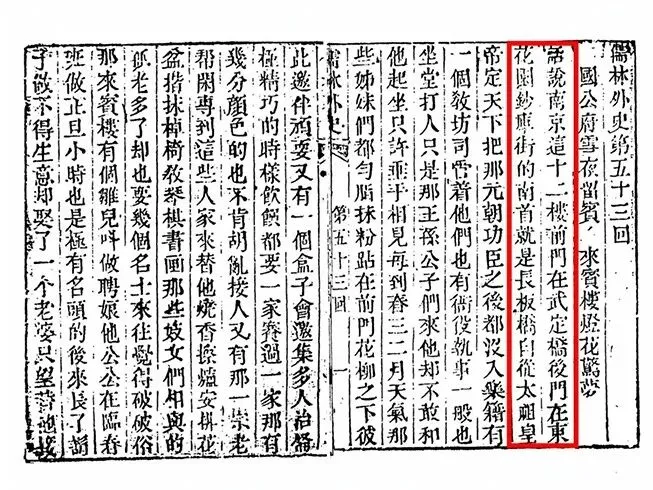 儒林外史第五十三回
國公府雪夜留賓 來賓樓燈花驚夢
話說南京這十二樓前門在武定橋後門在東
花園鈔庫街的南首就是長板橋自從太祖皇
帝定天下把那元朝功臣之後都沒入樂籍有
一個敎坊司管着他們也有衙役執事一般也
坐堂打人只是那王孫公子們來他却不敢和
他起坐只許垂手相見每到春三二月天氣那
些姊妹們都勻脂抹粉站在前門花柳之下彼
儒林外史 第五十三回 一
此邀伴頑耍又有一個盒子會邀集多人治備
極精巧的時樣飲饌都要一家賽過一家那有
幾分顏色的也不肯胡亂接人又有那一宗老
帮閒專到這些人家來替他燒香擦爐安排花
盆揩抹棹椅敎琴棋書畫那些妓女們相與的
孤老多了却也要幾個名士來往覺得破破俗
那來賓樓有個雛兒叫做聘娘他公公在臨春
班做正旦小時也是極有名頭的後來長了鬍
子做不得生意却娶了一个老婆只望替他接